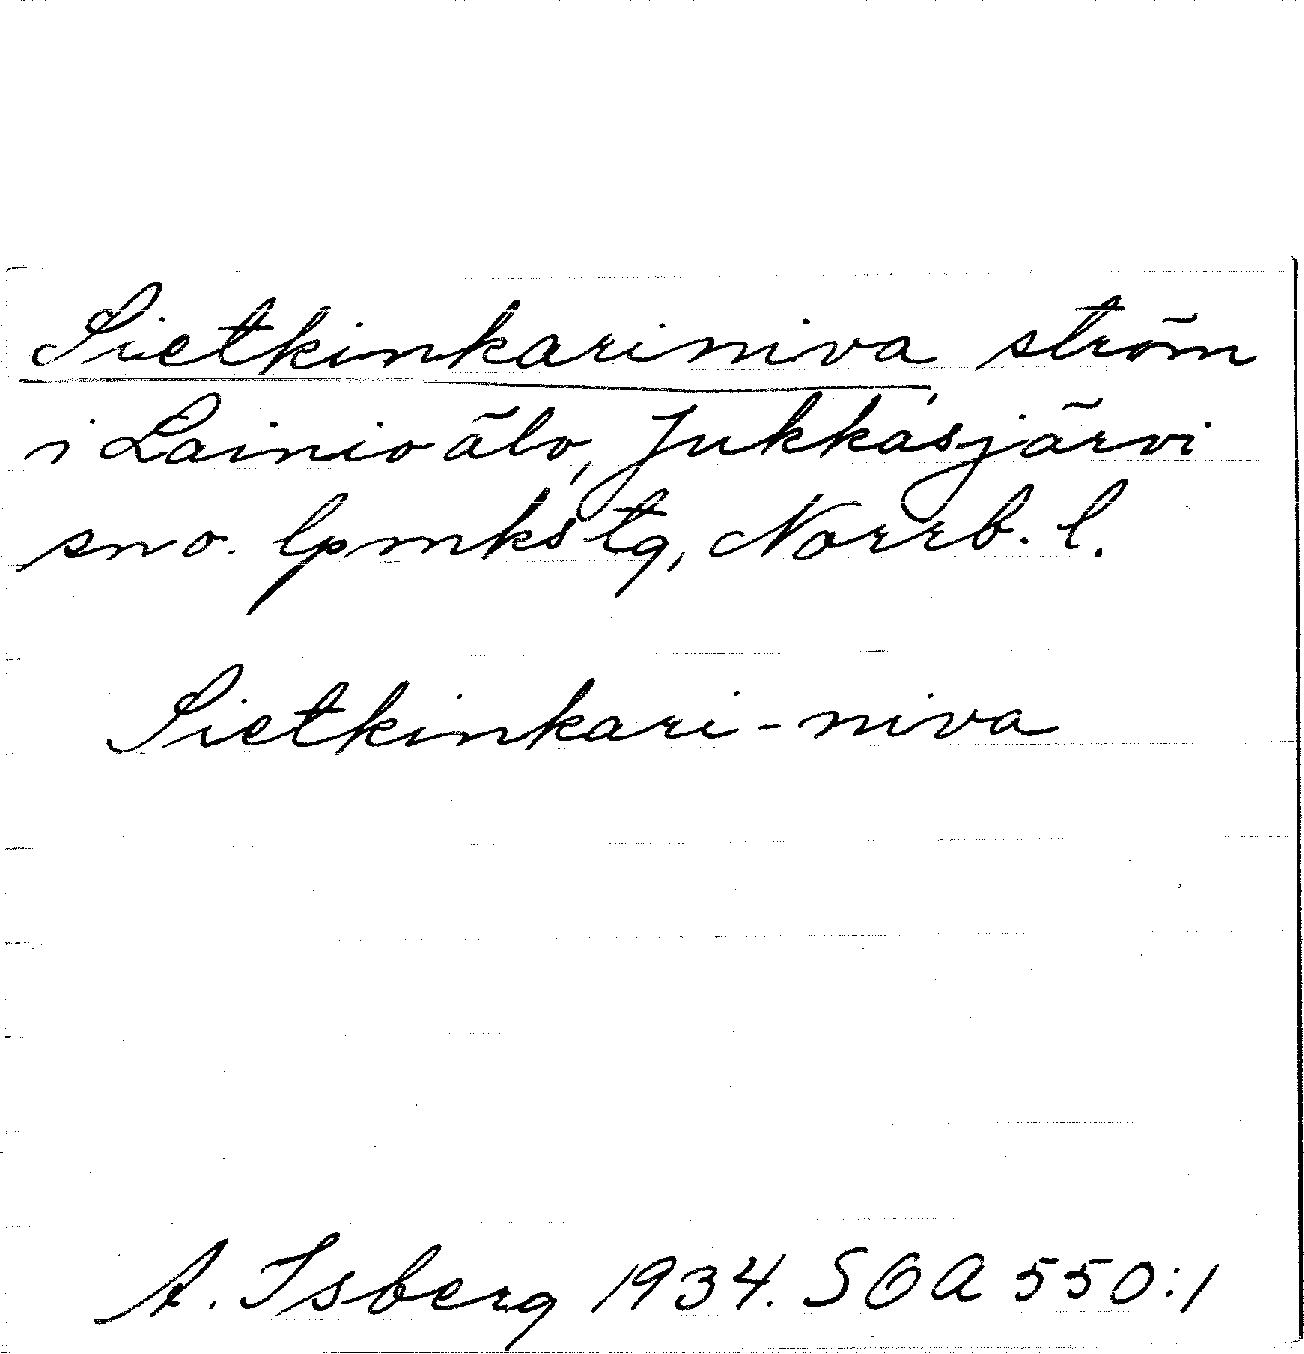 Sietkinkariniva ström
i Lainio älv, Jukkasjärvi
sno. lpmkstg, Norrb. l.
Sietkinkari-niva
A. Isberg 1934. SOA 550:1